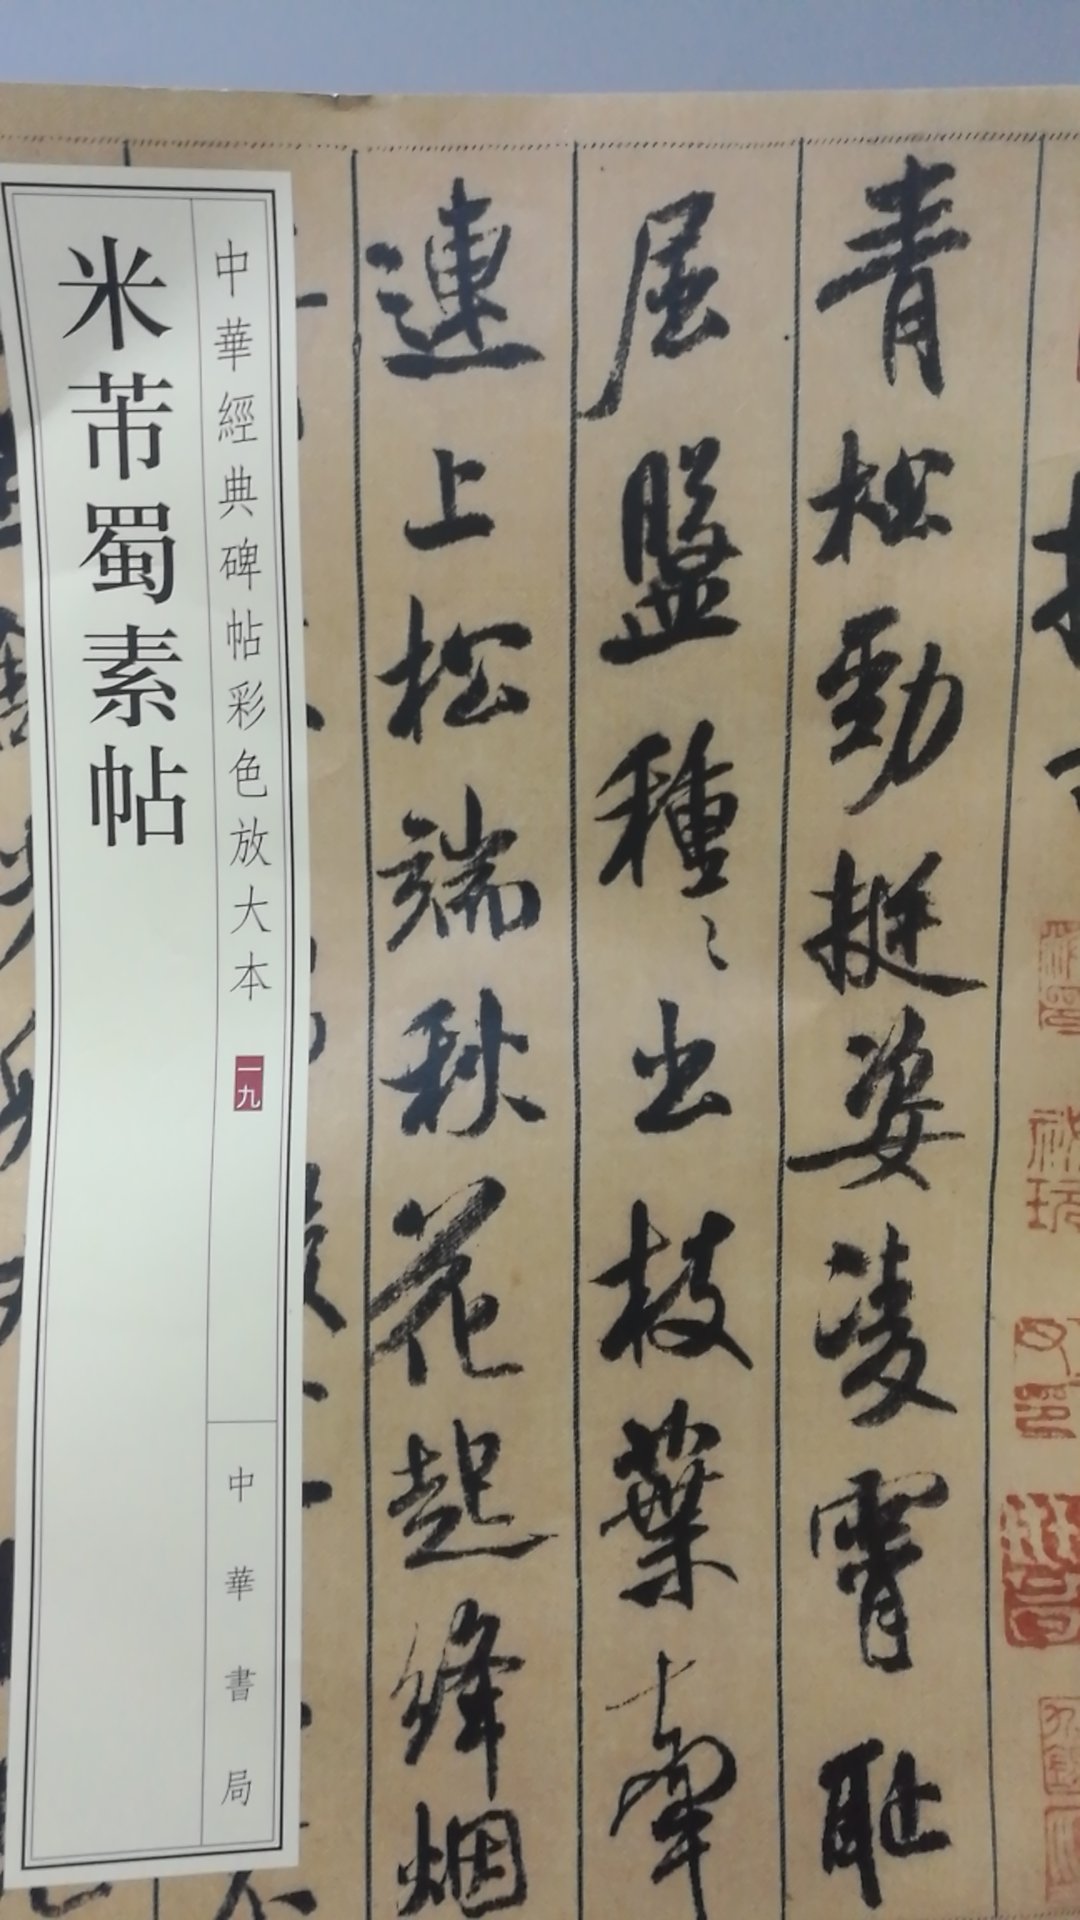 青松勁挺姿凌霄耻
屈盤種〻出枝葉牽
連上松端秋花起絳烟
中華經典碑帖彩色放大本
一九
中華書局
米芾蜀素帖